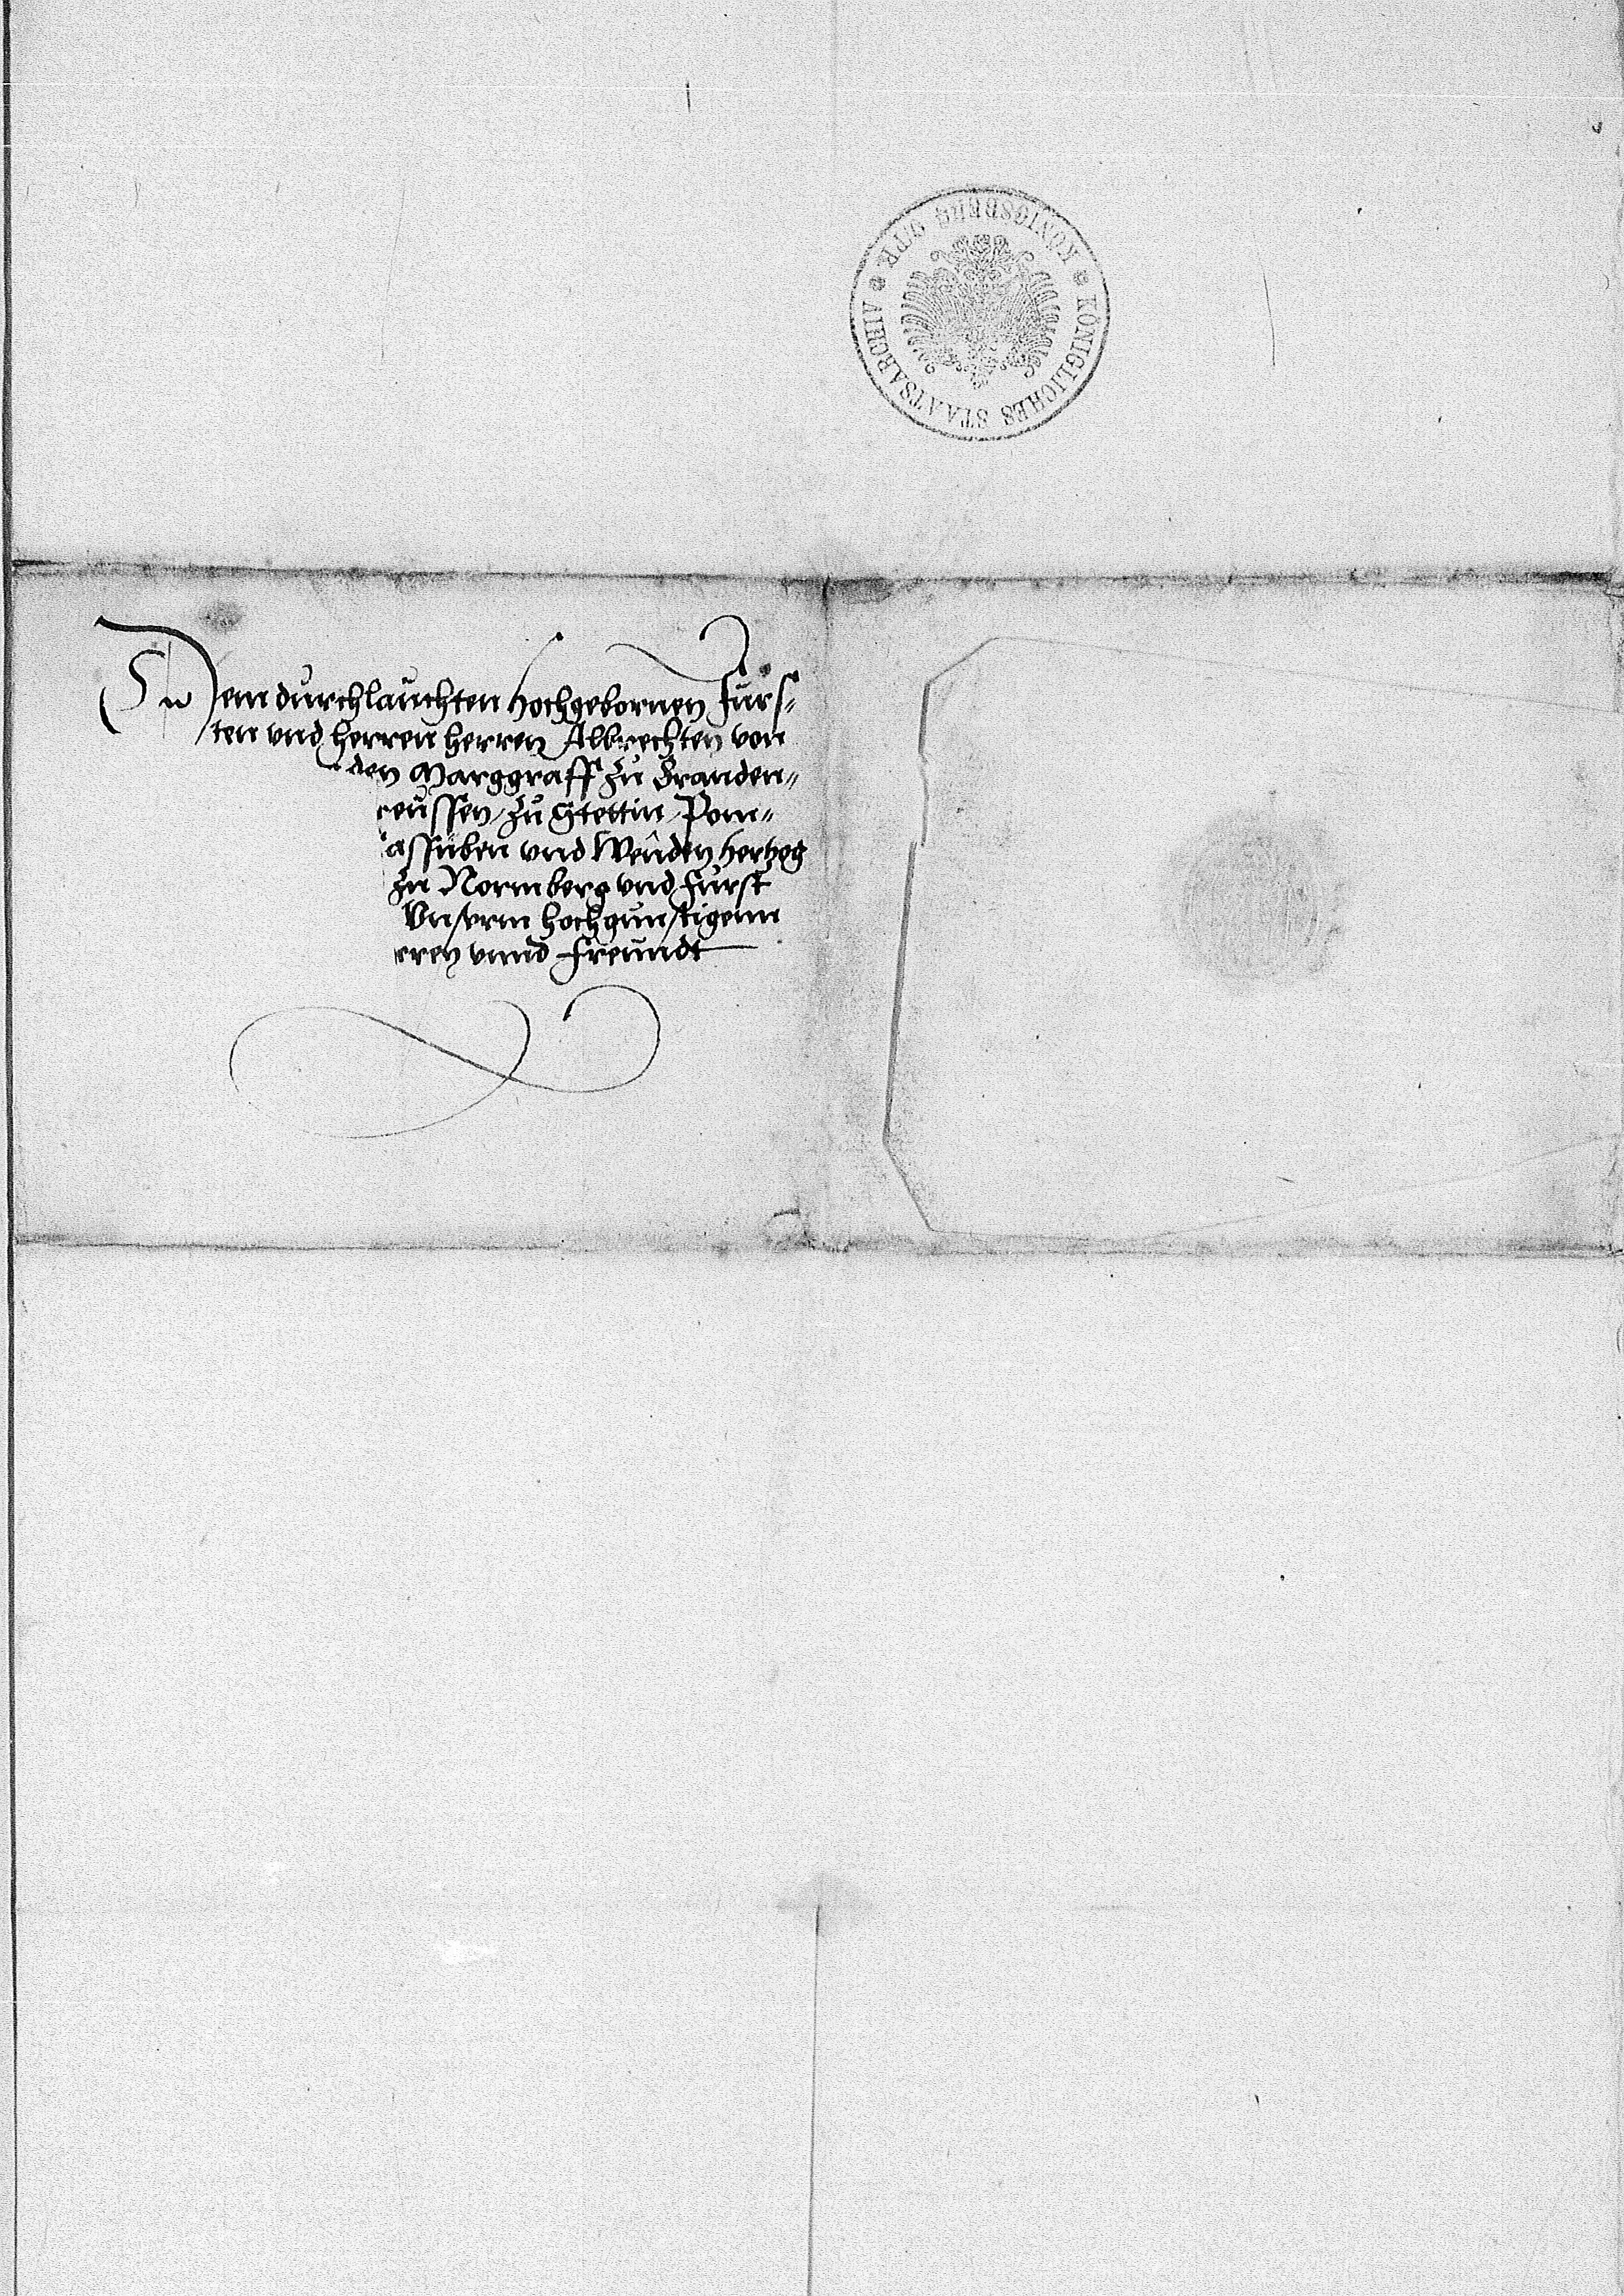 KÖNIGLICHES STAATSARCHIV
KÖNIGSBERG O/PR
Dem durchlauchten hochgebornen Furs-
ten vnd herren herren Albrechten von
den Marggraff zu Branden-
reussen / zu Stettin / Pom-
assuben vnd Wenden hertzog
zu Normberg vnd furst
Vnserm hochgunstigenn
rren vnnd freundt